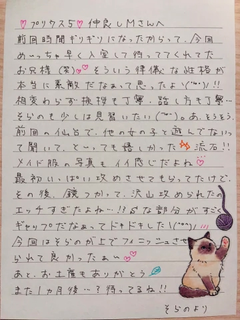 ♡プリウス5♡仲良しMさんへ
前回時間ギリギリになったからって、今回
めーっちゃ早く入室して待っててくれてた
お兄様(笑)♡そういう律儀な性格が
本当に素敵だなぁって思ったよ(''ω'')!!
相変わらず挨拶も丁寧、話し方も丁寧…
そらのも少しは見習いたい(''ω'')あ、そうそう、
前回の仙台で、他の女の子と遊んでないっ
て聞いて、とっても嬉しかった 流石!!
メイド服の写真もイイ感じだよね♡
最初いっぱい攻めさせてもらってたけど、
その後、鏡つかって、沢山攻められたの
エッチすぎたよね…!!Sな部分がすごく
ギャップだなぁってドキドキした(''ω'')!
今回はそらのが上でフィニッシュさせ
られて良かったぁ〜
あと、お土産もありがとう
また1ヵ月後〜?待ってるね!!
そらのより